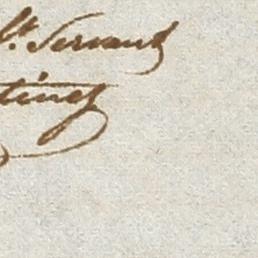 bt. Servant
tinez